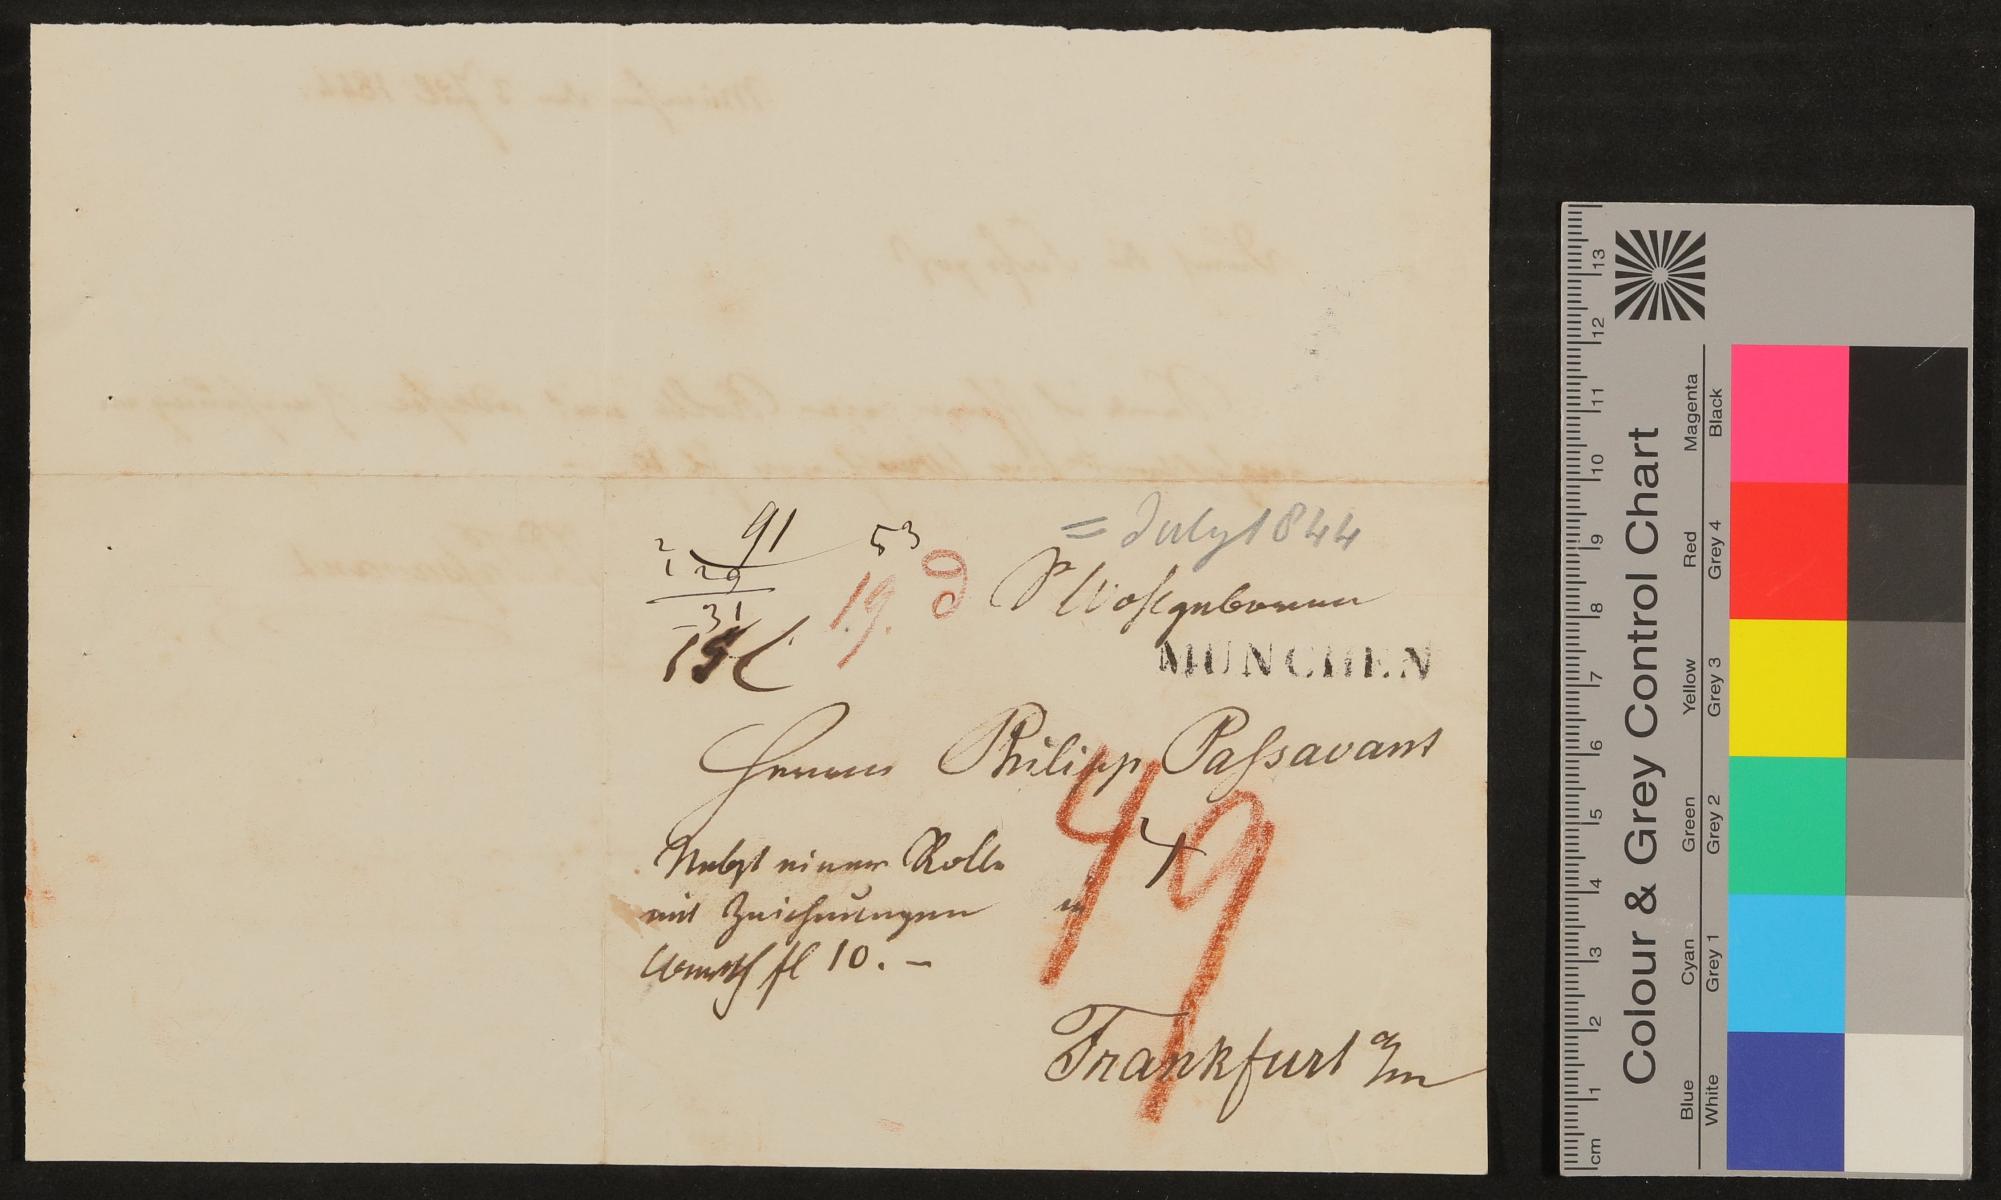 = July 1844
91
53
2
1 29
31
19.
Sr Wohlgeboren
MÜNCHEN
Herrn Philipp Paſsavant
49
Nebst einer Rolle
mit Zeichnungen
Werth fl 10. –
in
Frankfurt a/m
Colour & Grey Control Chart
Blue Cyan Green Yellow Red Magenta
White Grey 1 Grey 2 Grey 3 Grey 4 Black
cm 1 2 3 4 5 6 7 8 9 10 11 12 13